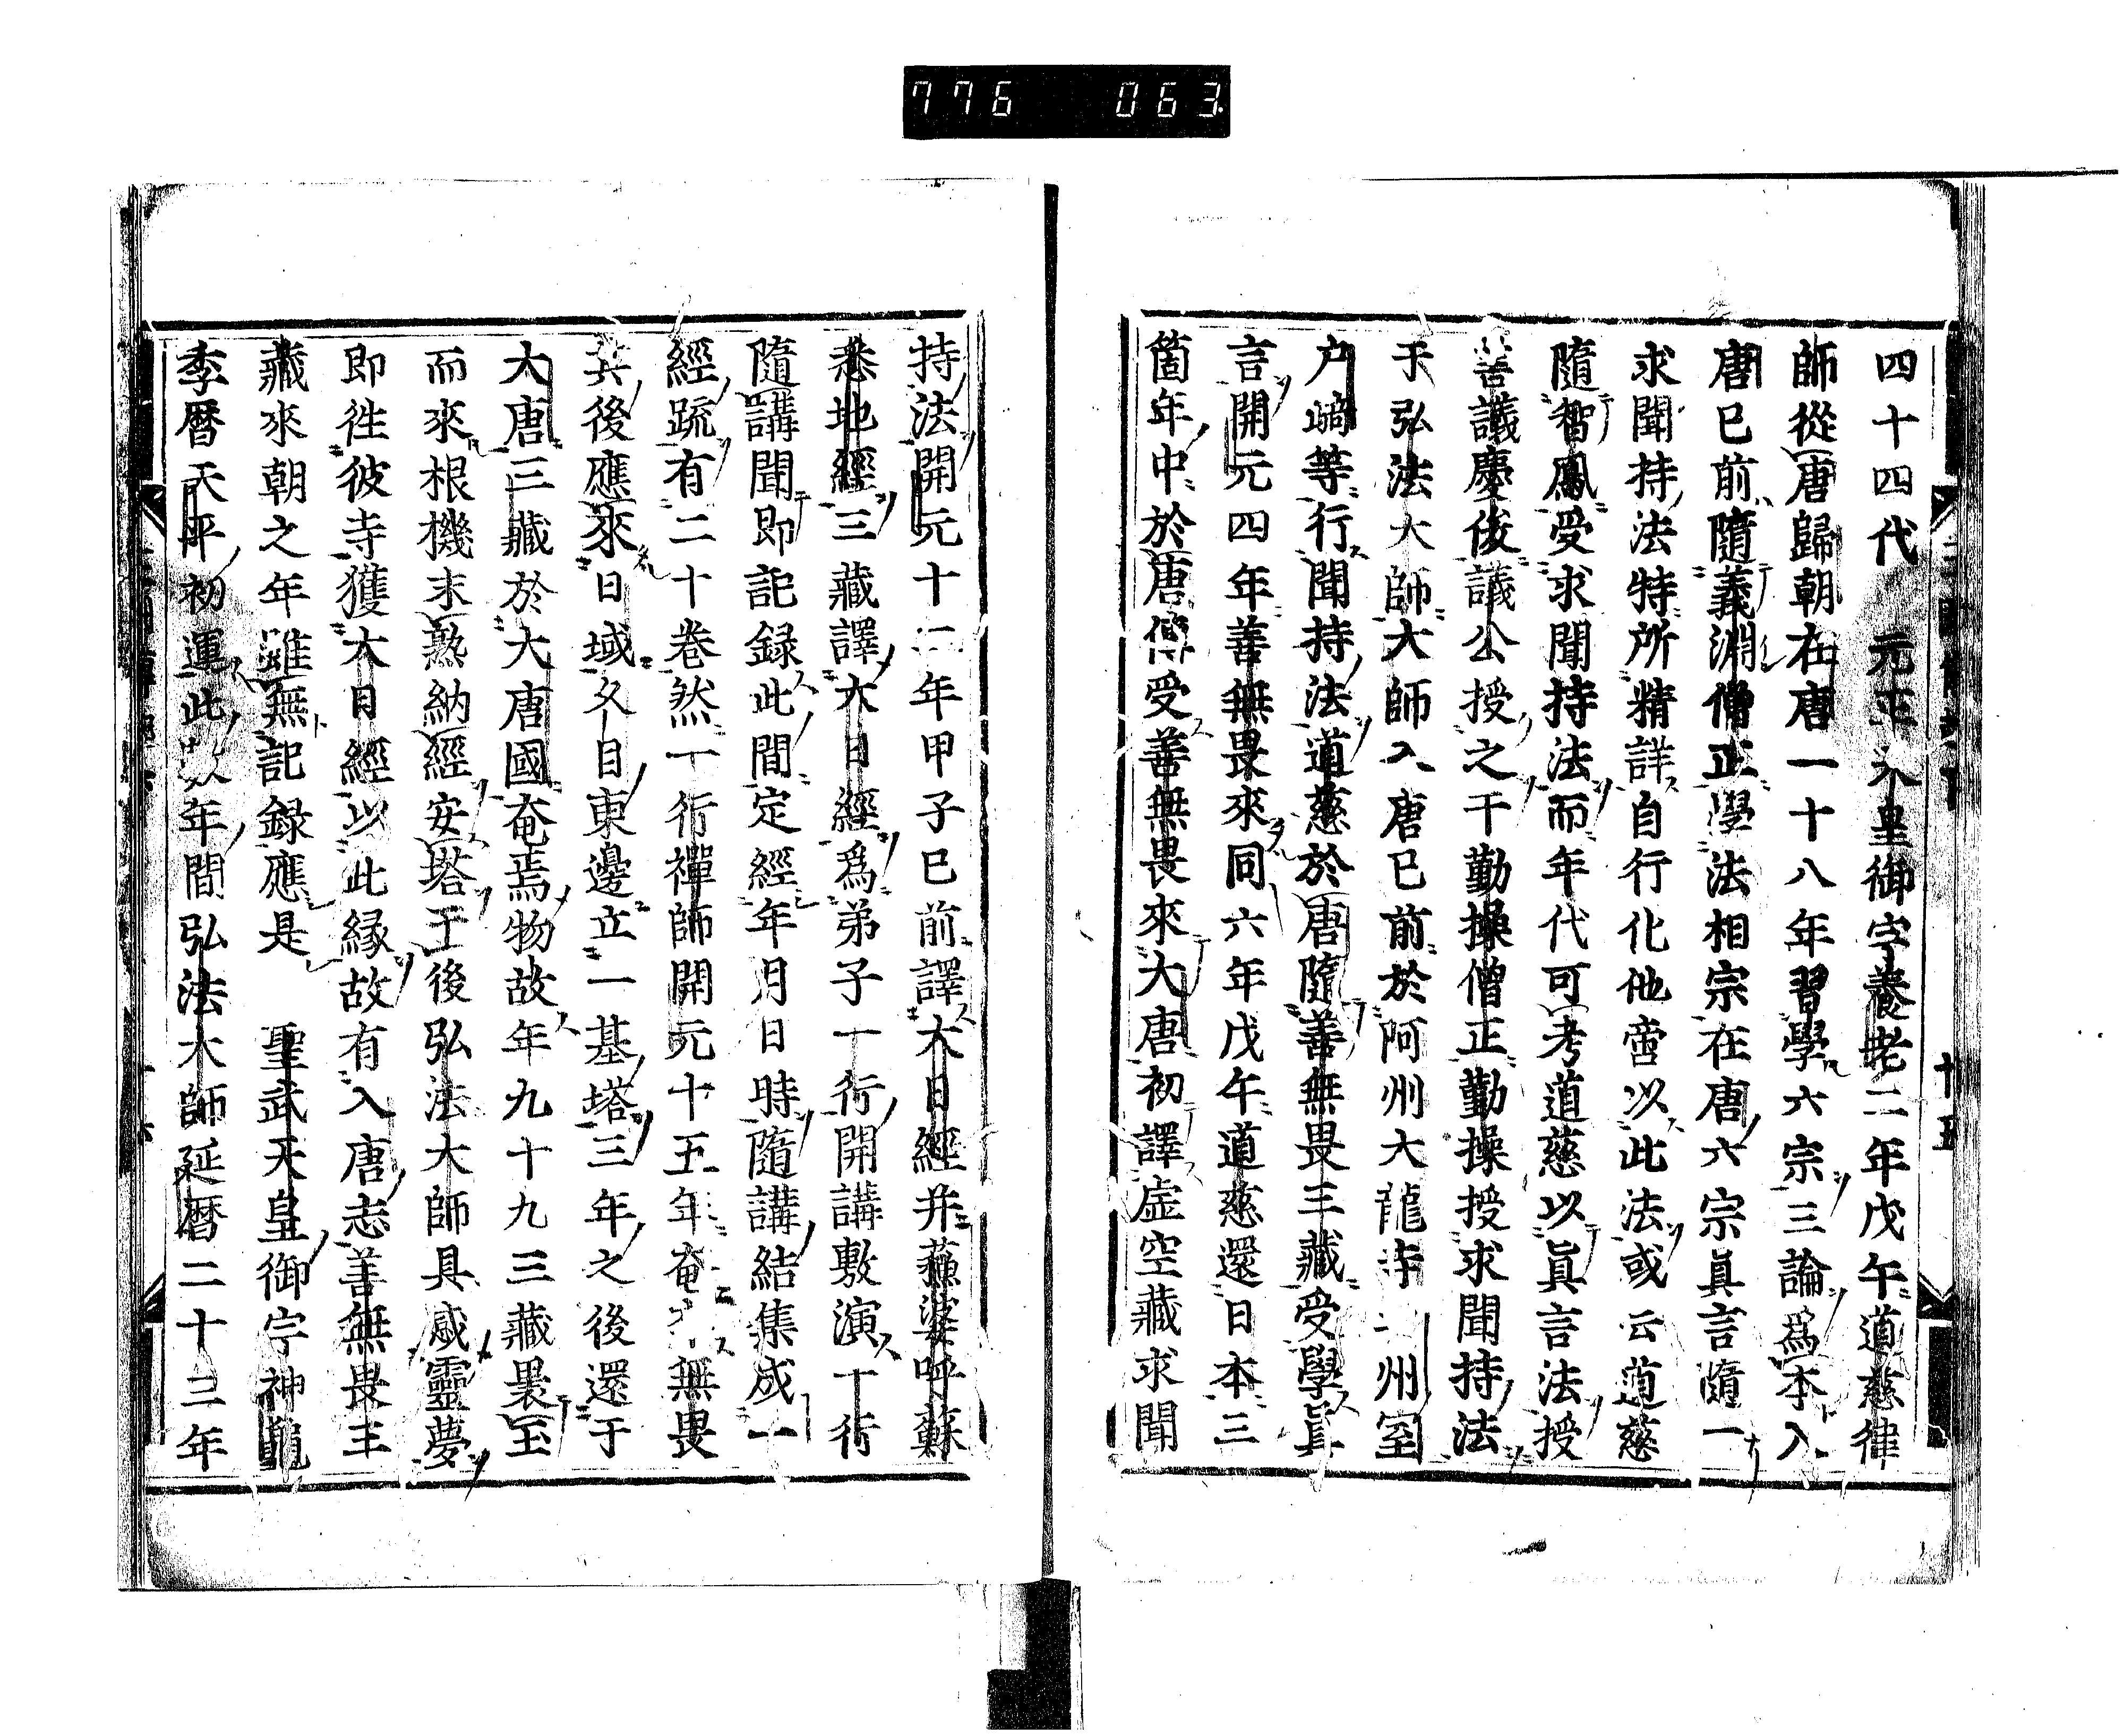 776 063
四十四代 元正天皇御宇養老二年戊午道慈律
師從唐歸朝在唐一十八年習學六宗三論爲本入
唐已前隨義淵僧正學法相宗在唐六宗眞言隨一
求聞持法特所精詳自行化他啻以此法或云道慈
隨智鳳受求聞持法而年代可考道慈以眞言法授
善議慶俊議公授之于勤操僧正勤操授求聞持法
于弘法大師大師入唐已前於阿州大龍寺 州室
户﨑等行聞持法道慈於唐隨善無畏三藏受學眞
言開元四年善無畏來同六年戊午道慈還日本三
箇年中於唐傳受善無畏來大唐初譯虛空藏求聞
持法開元十二年甲子已前譯大日經并蘇婆呼蘇
悉地經三藏譯大日經爲弟子一行開講敷演一行
隨講聞即記録此間定經年月日時隨講結集成一
經疏有二十卷然一行禪師開元十五年奄 無畏
其後應來日域久目東邊立一基塔三年之後還于
大唐三藏於大唐國奄焉物故年九十九三藏曩至
而來根機未熟納經安塔于後弘法大師具感靈夢
即徃彼寺獲大日經以此縁故有入唐志善無畏三
藏來朝之年雖無記録應是 聖武天皇御宇神龜
季曆天平初運此 年間弘法大師延曆二十三年
十五